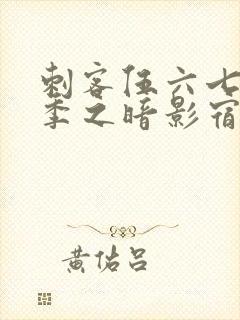 刺客伍六七
季之暗影宿
黄佑吕